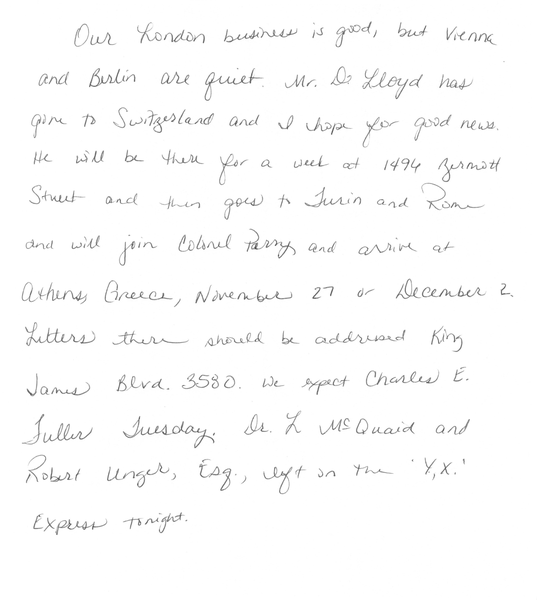 Our London business is good, but Vienna
and Berlin are quiet. Mr. D. Lloyd has
gone to Switzerland and I hope for good news.
He will be there for a week at 1496 Zermott
Street and then goes to Turin and Rome
and will join Colonel Parry and arrive at
Athens, Greece, November 27 or December 2.
Letters there should be addressed King
James Blvd. 3580. We expect Charles E.
Fuller Tuesday. Dr. L McQuaid and
Robert Unger, Esq., left on the 'Y,X.'
Express tonight.